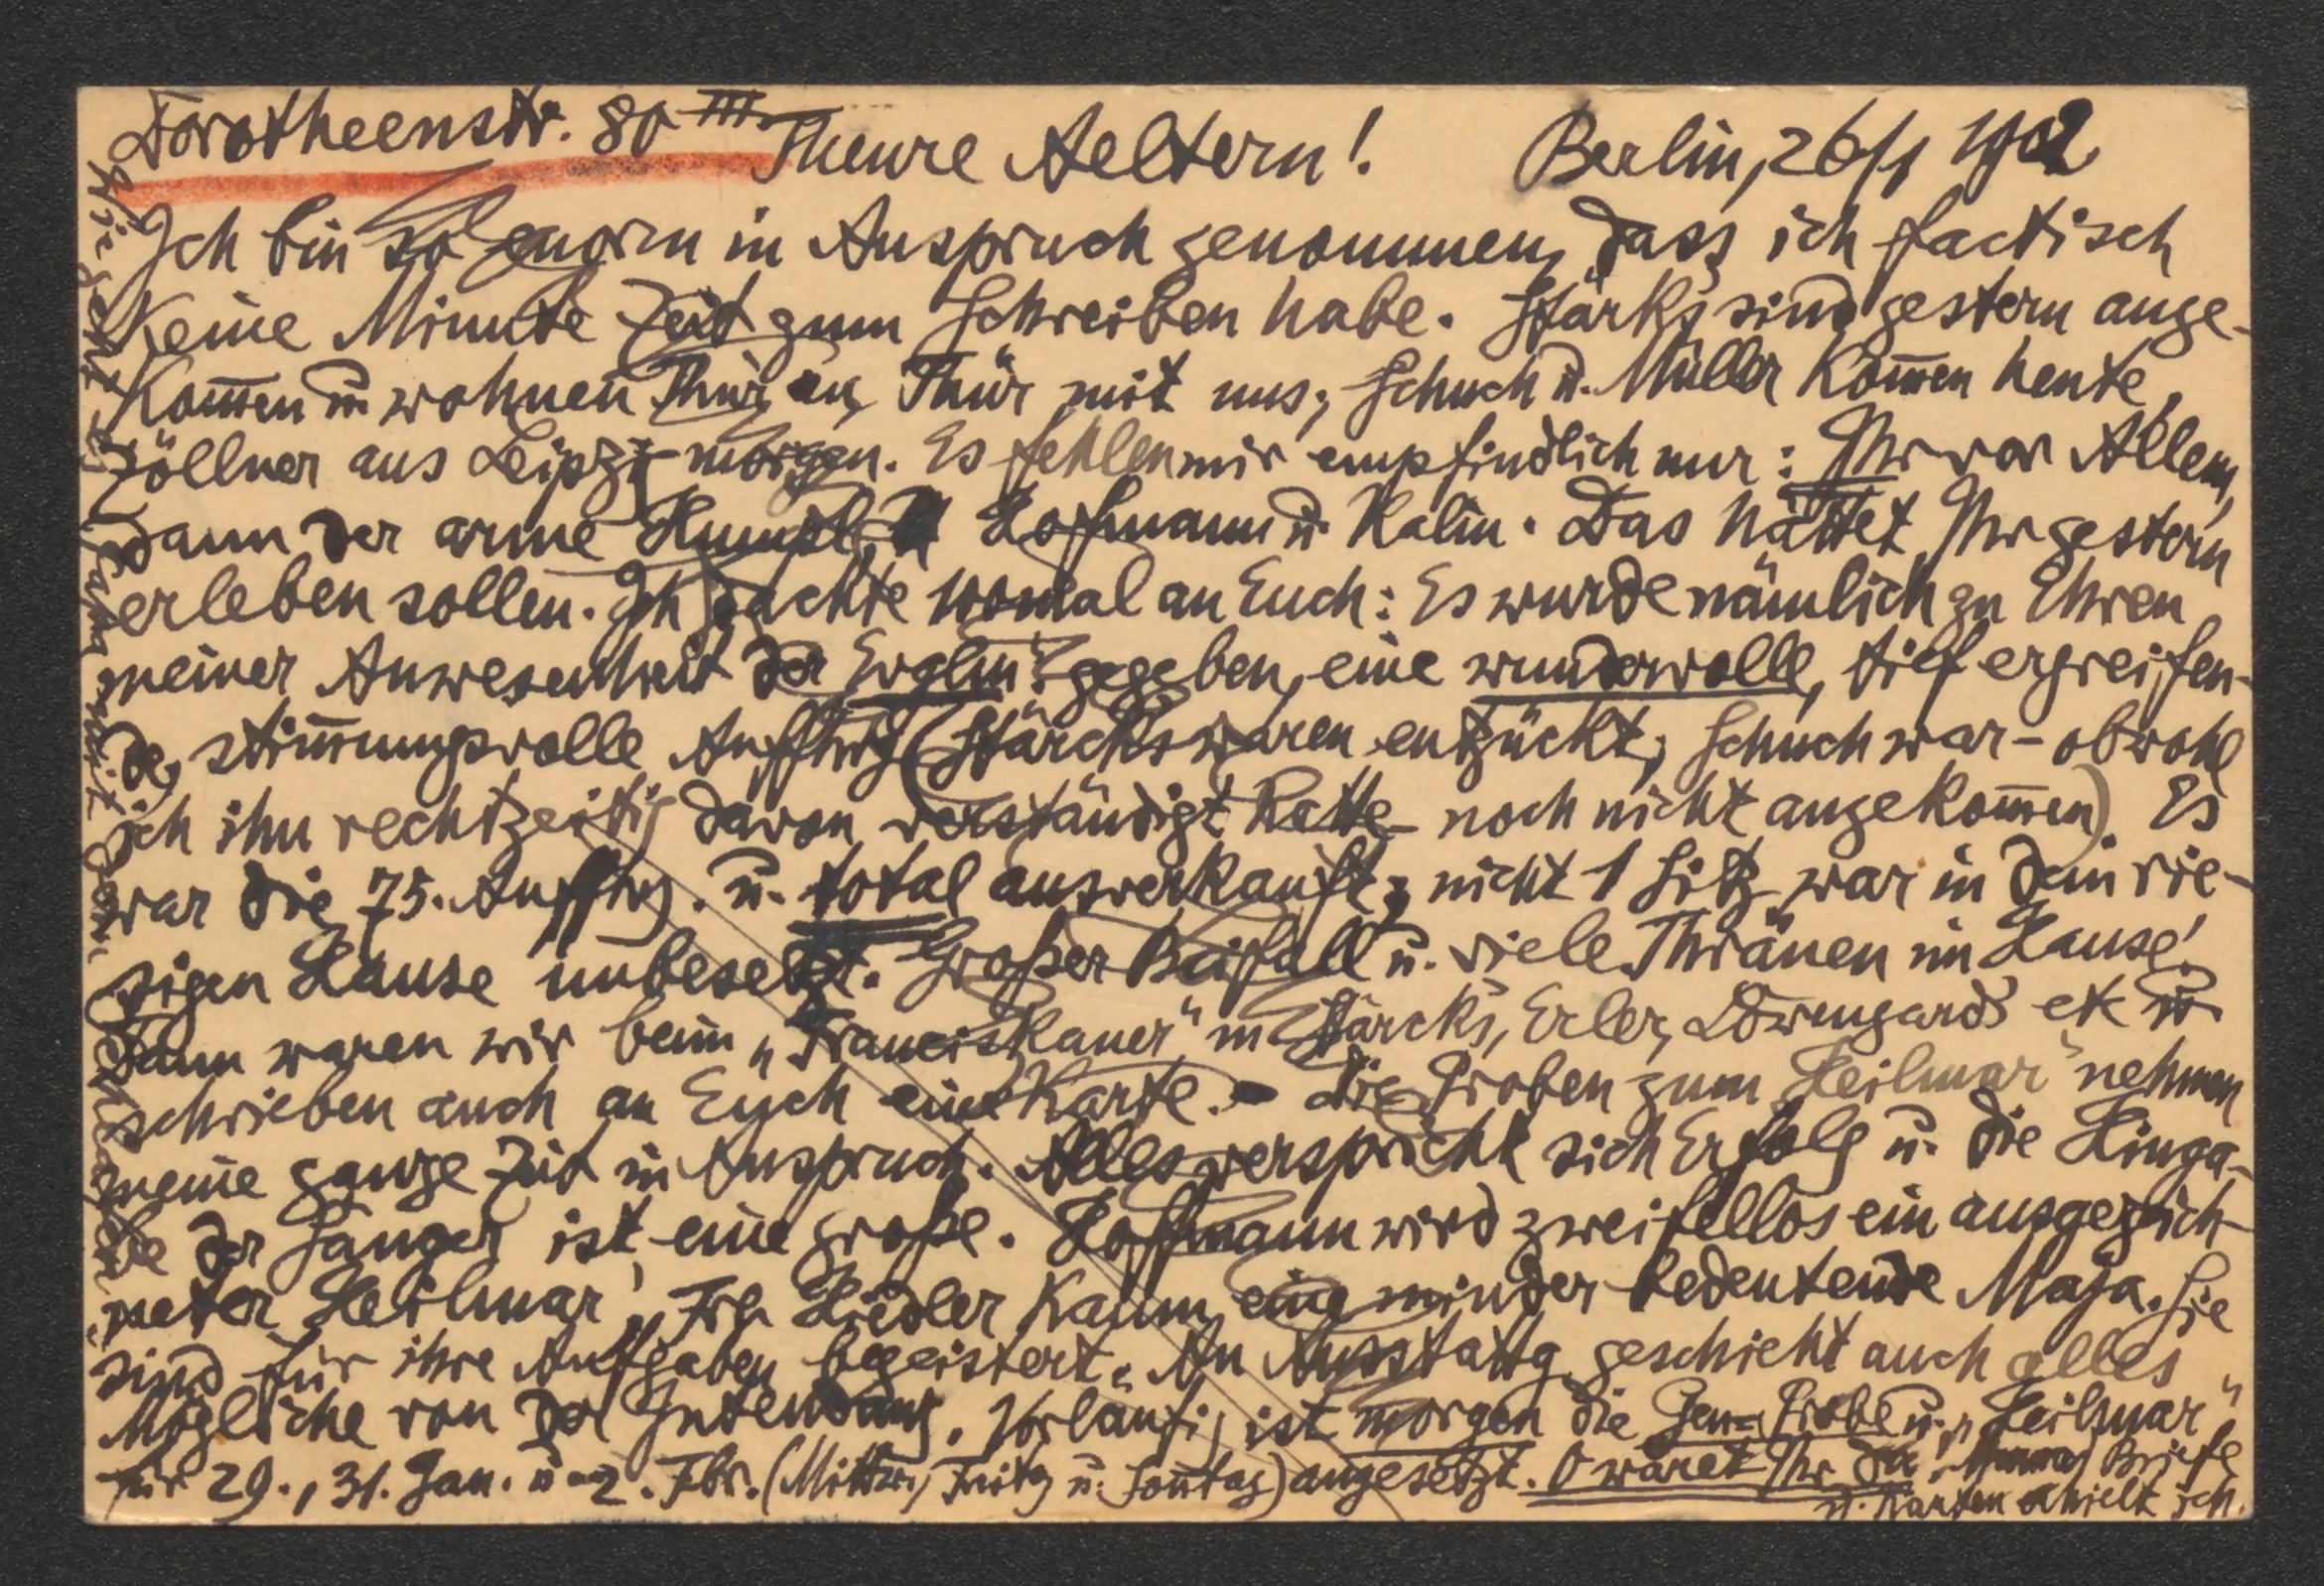 Dorotheenstr. 80 III.
Theure Aeltern! Berlin, 26/1 1902
Ich bin so enorm in Anspruch genommen, dass ich factisch
keine Minute Zeit zum Schreiben habe. Stärks sind gestern ange-
kom̄en u. wohnen Thür an Thür mit uns; Schuch u. Müller kom̄en heute,
Zöllner aus Leipzig morgen. Es fehlen mir empfindlich nur: Ihr vor Allem,
dann der arme Humpl, Hofmann u. Kalin. Das hättet Ihr gestern
erleben sollen. Ich dachte 100mal an Euch: Es wurde nämlich zu Ehren
meiner Anwesenheit der Evglm. gegeben, eine wundervolle, tief ergreifen-
de, stim̄ungsvolle Auffhrg (Stärcks waren entzückt, Schuch war – obwohl
ich ihn rechtzeitig davon verständigt hatte – noch nicht angekom̄en). Es
war die 75. Auffhrg. u. total ausverkauft, nicht 1 Sitz war in dem rie-
sigen Hause unbesetzt. Großer Beifall u. viele Thränen im Hause!
Dann waren wir beim „Franciskaner" m Stärcks, Erler, Löwengard etc u.
schrieben auch an Euch eine Karte. – Die Proben zum „Heilmar" nehmen
meine ganze Zeit in Anspruch. Alles verspricht sich Erfolg u. die Hinga-
be der Sänger ist eine große. Hoffmann wird zweifellos ein ausgezeich-
neter Heilmar, Frl. Hiedler kaum eine minder bedeutende Maja. Sie
sind für ihre Aufgaben begeistert. An Ausstattg geschieht auch alles
Mögliche von der Intendanz. Vorläufig ist morgen die Gen.-Probe u. „Heilmar"
für 29., 31. Jan. u. 2. Fbr. (Mittw., Freitg u. Son̄tag) angesetzt. O wäret Ihr da! Briefe
u. Karten erhielt ich.